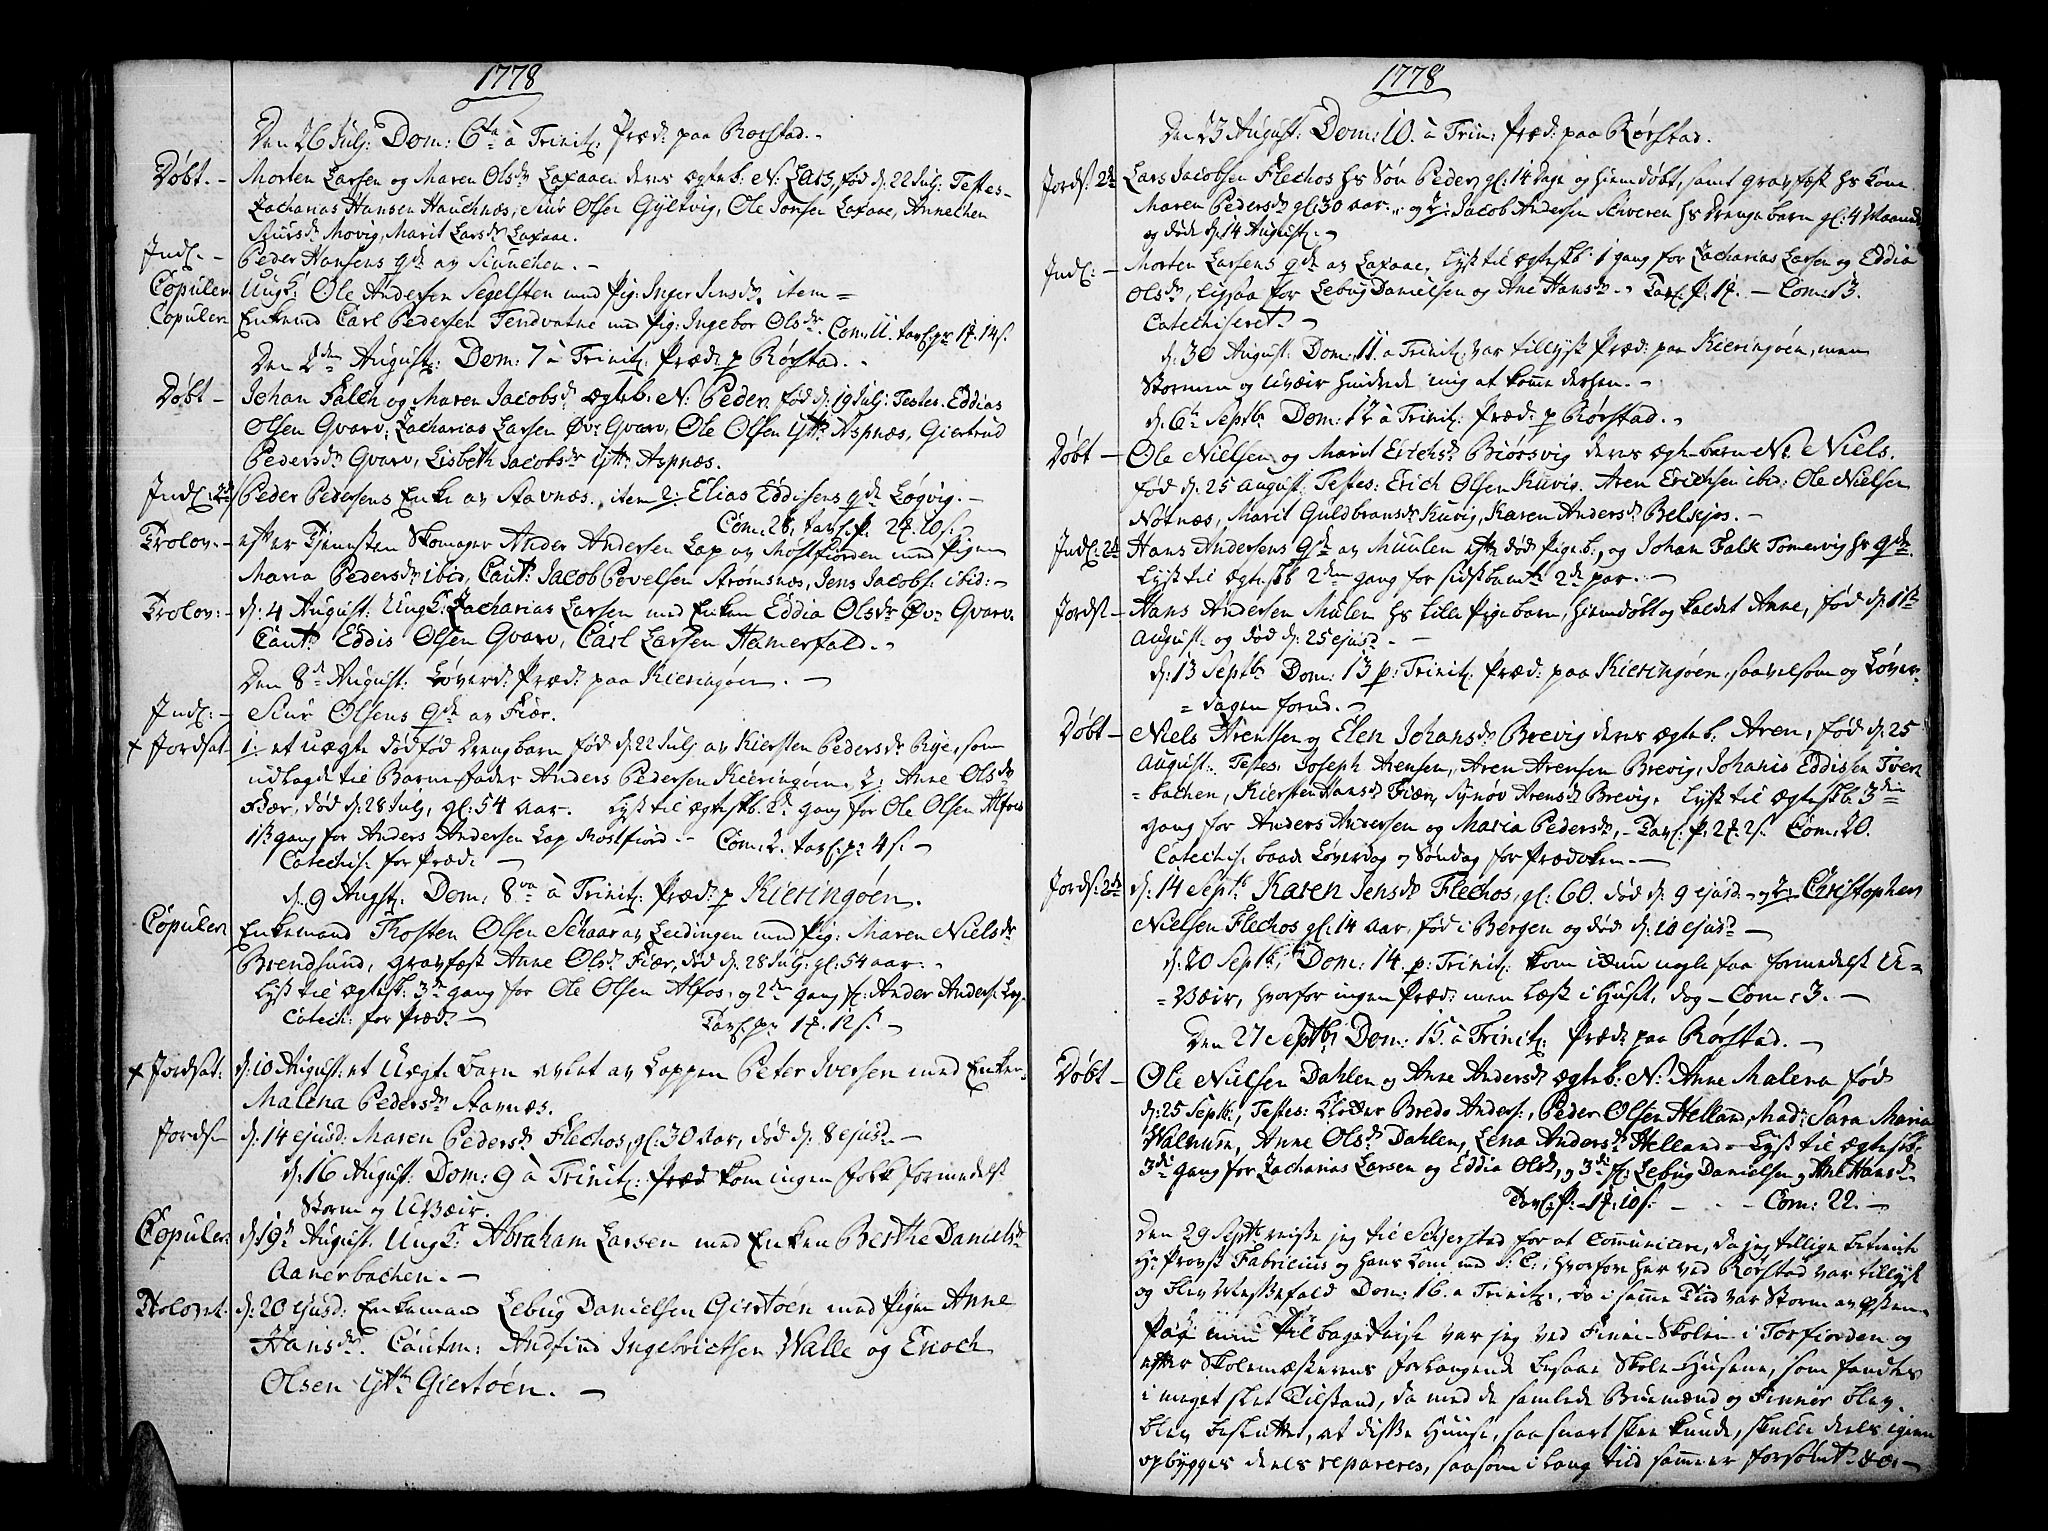 1778
Den 26 Julj: Dom: 6ta à Trinit: Præd: paa Rørstad.
Døbt. - Morten Larsen og Maren Olsdr Laxaaen deres ægteb: N: Lars, fød d: 22 Julj: Testes-
Zacharias Hansen Hauchnæs, Siur Olsen Gyltvig, Ole Jonsen Laxaae, Annechen
Siursdr Movig, Marit Larsdr Laxaae.
Indl. - Peder Hansens qde av Siunchen. -
Copuler Ungk: Ole Andersen Segelsten med Pig: Inger Jensdr. item =
Copuler Enkemd Carl Pedersen Tendvatne med Pig: Ingebor Olsdr. Com: 11. tavl: pr 1 14 s.
Den 2den August: Dom: 7 à Trinit: Præd: p Rørstad. -
Døbt - Johan Falch og Maren Jacobsdr ægteb. N: Peder fød d: 19 Julj: Testes. Eddias
Olsen Qvarv, Zacharias Larsen Øvr Qvarv, Ole Olsen Ytt: Aspnæs, Giertrud
Pedersdr Qvarv, Lisbeth Jacobsdr Ytt: Aspnæs.
Indl: 2de Peder Pedersens Enke av Stavnæs. item 2: Elias Eddissens qde Løgvig. -
Com: 28, tavl. p. 2 10 s.
Trolov. - efter Tjennesten Skomager Ander Andersen Lap av Mostfiorden med Pigen
Maria Pedersdr ibid, Caut: Jacob Povelsen Strømsnæs, Jens Jacobs: ibid: -
Trolov: - d: 4 August: Ungk: Zacharias Larsen med Enken Eddia Olsdr Øvr Qvarv.
Caut: Eddis Olsen Qvarv, Carl Larsen Hamerfald. -
Den 8de August: Løverd: Præd: paa Kieringøen. -
Indl: - Siur Olsens qde av Fiær.
+ Jordsat 1. et uægte dødfød Drengbarn fød d: 22 Julj av Kiersten Pedersdr Rye, som
udlagde til Barnefader Anders Pedersen Kieringøen, 2: Anne Olsdr
Fiær, død d: 28 Julj, gl: 54 aar. Lyst til ægteskb. 2de gang for Ole Olsen Alfos
1ste gang for Anders Andersen Lap Mostfiord. - Com: 2. tavl: p: 4 s. -
Catechis: for Præd: -
d: 9 Augst: Dom: 8va à Trinit: Præd: p Kieringøen.
Copuler Enkemand Thosten Olsen Schaar av Leidingen med Pig: Maren Nielsdr
Brendsund, gravfæst Anne Olsdr Fiær, død d: 28 Julj: gl: 54 aar. -
Lyst til ægtesk: 3de gang for Ole Olsen Alfos, og 2den gang f: Ander Anders: Lap.
Catech: for Præd: - Tavl: p: 1 12 s. -
+ Jordsat: d: 10 August: et Uægte barn avlet av Lappen Peter Iversen med Enken
Malena Pedersdr Stavnæs.
Jords - d: 14 ejusd: Maren Pedersdr Flechos, gl: 30 aar, død d: 8 ejusd. -
d: 16 August: Dom: 9 à Trinit: Præd kom ingen folk formedelst
Storm og Uveir.
Copuler: d: 19de August. Ungk: Abraham Larsen med Enken Berthe Danielsdr
Aanerbachen. -
Trolovet. d: 20 ejusd: Enkemand Lebug Danielsen Giertøen med Pigen Anne
Hansdr. Cautm: Andfind Ingebrictsen Walle og Enoch
Olsen Ytt: Giertøen. -
1778
Den 23 August: Dom: 10. à Trin: Præd: paa Rørstad.
Jords: 2de Lars Jacobsen Flechos hs Søn Peder gl: 14 Dage og hiemdøbt, samt gravfæst hs Kone
Maren Pedersdr gl: 30 aar. - og Jacob Andersen hs Drenge barn gl: 4 Maaned
og døde d: 14 August. -
Indl: - Morten Larsens qde av Laxaae, Lyst til ægteskb: 1 gang for Zacharias Larsen og Eddia
Olsdr, ligsaa for Lebug Danielsen og Ane Hansdr. - Tavl: p: 1. - Com: 13.
Catechiseret. -
d: 30 August: Dom: 11. a Trinit: var tillyst Præd: paa Kieringøen, men
Stormen og Uveir hindrede mig at komme derhen. -
d: 6te Septbr Dom: 12 à Trinit: Præd: p Rørstad. -
Døbt - Ole Nielsen og Marit Erichsdr Biørsvig deres ægte barn N: Niels.
fød d: 25 August: Testes: Erich Olsen Kuvig. Aren Erichsen ibid: Ole Nielsen
Nøtnæs, Marit Guldbransdr Kuvig, Karen Andersdr Belsejos. -
Indl: 2de Hans Andersens qde av Muulen efter død Pige b:, og Johan Falk Tomervig hs qde.
Lyst til ægteskb 2den gang for sidstbemte 2de par. -
Jords - Hans Andersen Mulen hs lille Pigebarn, hiemdøbt og kaldet Anne, fød d: 11te
August. og død d: 25 ejusd. -
d: 13 Septbr Dom: 13 p: Trinit: Præd: paa Kieringøen, saavelsom og Løver-
= dagen forud. -
Døbt - Niels Arentsen og Elen Johansdr Brevig deres ægteb: Aren, fød d: 25
August: Testes, Joseph Arensen, Aren Arensen Brevig, Johanis Eddissen Tver
= bachen, Kiersten Hansdr Fiær, Synøv Arensdr Brevig. Lyst til ægteskb. 3die
gang for Anders Andersen og Maria Pedersdr, - Tavl: p. 2 2 s. Com: 20.
Catechis: baade Løverdag og Søndag for Prædiken. -
Jords: 2de d: 14 Septbr Karen Jensdr Flechos, gl: 60. død d: 9 ejusd. - og 2: Christopher
Nielsen Flechos gl: 14 aar, fød i Bergen og død d: 10 ejusd -
d: 20 Septbr, Dom: 14 p: Trinit: kom icun nogle faa formedelst U-
= veir, hvorfor ingen Præd: men læst i Huset, dog - Com: 3. -
Den 27 Septbr Dom: 15. à Trinit: Præd: paa Rørstad. -
Døbt - Ole Nielsen Dahlen og Anne Andersdr ægteb: N: Anne Malena fød
d: 25 Septbr, Testes: Klocker Bredo Anders:, Peder Olsen Helland, Mad: Sara Maria
Walnum, Anne Olsdr Dahlen, Lena Andersdr Helland - Lyst til ægteskb.
3die gang for Zacharias Larsen og Eddia Olsdr, og 3die f: Lebug Danielsen og Ane Hansdr.
Tavl: p. 1. 10 s. - - Com: 22. -
Den 29 Septbr reiste jeg til Schjerstad for at Communicere, da jeg tillige betiente
Hr Provst Fabricius og hans Kone med S: C:, hvorfor her ved Rørstad var tillyst
og blev Messefald Dom: 16. a Trinit:, da i samme Tiid var Storm av Østen.
Paa min Tilbagereise var jeg ved Finne-Skolen i Torfiorden og
efter Skolemæsterens forlangende besaae Skole-Husene, som fandtes
i meget slet Tilstand, da med de samlede Buemænd og Finner blev
blev besluttet, at disse Huuse, saa snart skee kunde, skulle deels igien
opbygges deels repareres, saasom i lang tiid samme er forsømt